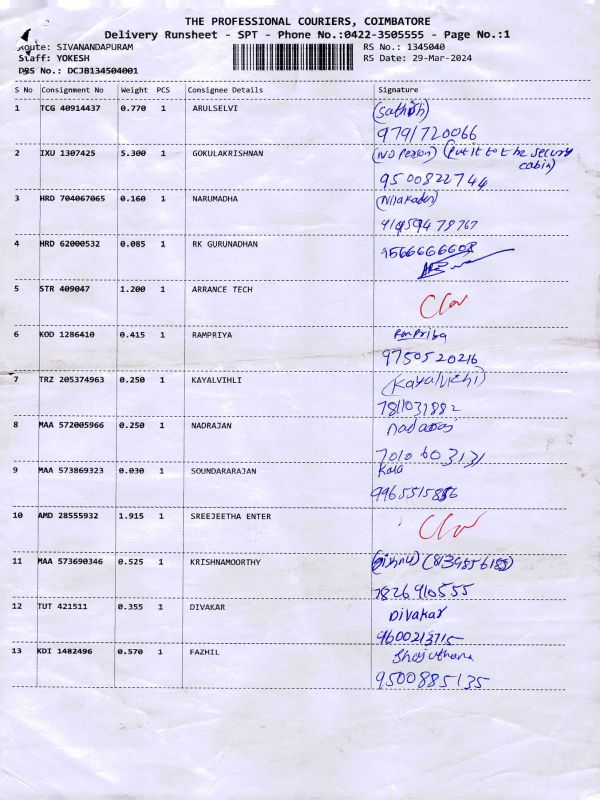 THE PROFESSIONAL COURIERS, COIMBATORE
Delivery Runsheet - SPT - Phone No.:0422-3505555 - Page No.:1
Route: SIVANANDAPURAM RS No.: 1345040
Staff: YOKESH RS Date: 29-Mar-2024
DRS No.: DCJB134504001
S No Consignment No Weight PCS Consignee Details Signature
1 TCG 40914437 0.770 1 ARULSELVI (Sathish)
9791720066
2 IXU 1307425 5.300 1 GOKULAKRISHNAN (No Person) (Put it to the security
cabin)
9500822744
3 HRD 704067065 0.160 1 NARUMADHA
4 HRD 62000532 0.085 1 RK GURUNADHAN
5 STR 409047 1.200 1 ARRANCE TECH
6 KOD 1286410 0.415 1 RAMPRIYA
9750520216
7 TRZ 205374963 0.250 1 KAYALVIHLI
7811031882
8 MAA 572005966 0.250 1 NADRAJAN
7010603131
9 MAA 573869323 0.030 1 SOUNDARARAJAN Kala
10 AMD 28555932 1.915 1 SREEJEETHA ENTER
11 MAA 573690346 0.525 1 KRISHNAMOORTHY
7826910555
12 TUT 421511 0.355 1 DIVAKAR Divakar
9600213715
13 KDI 1482496 0.570 1 FAZHIL
9500885135